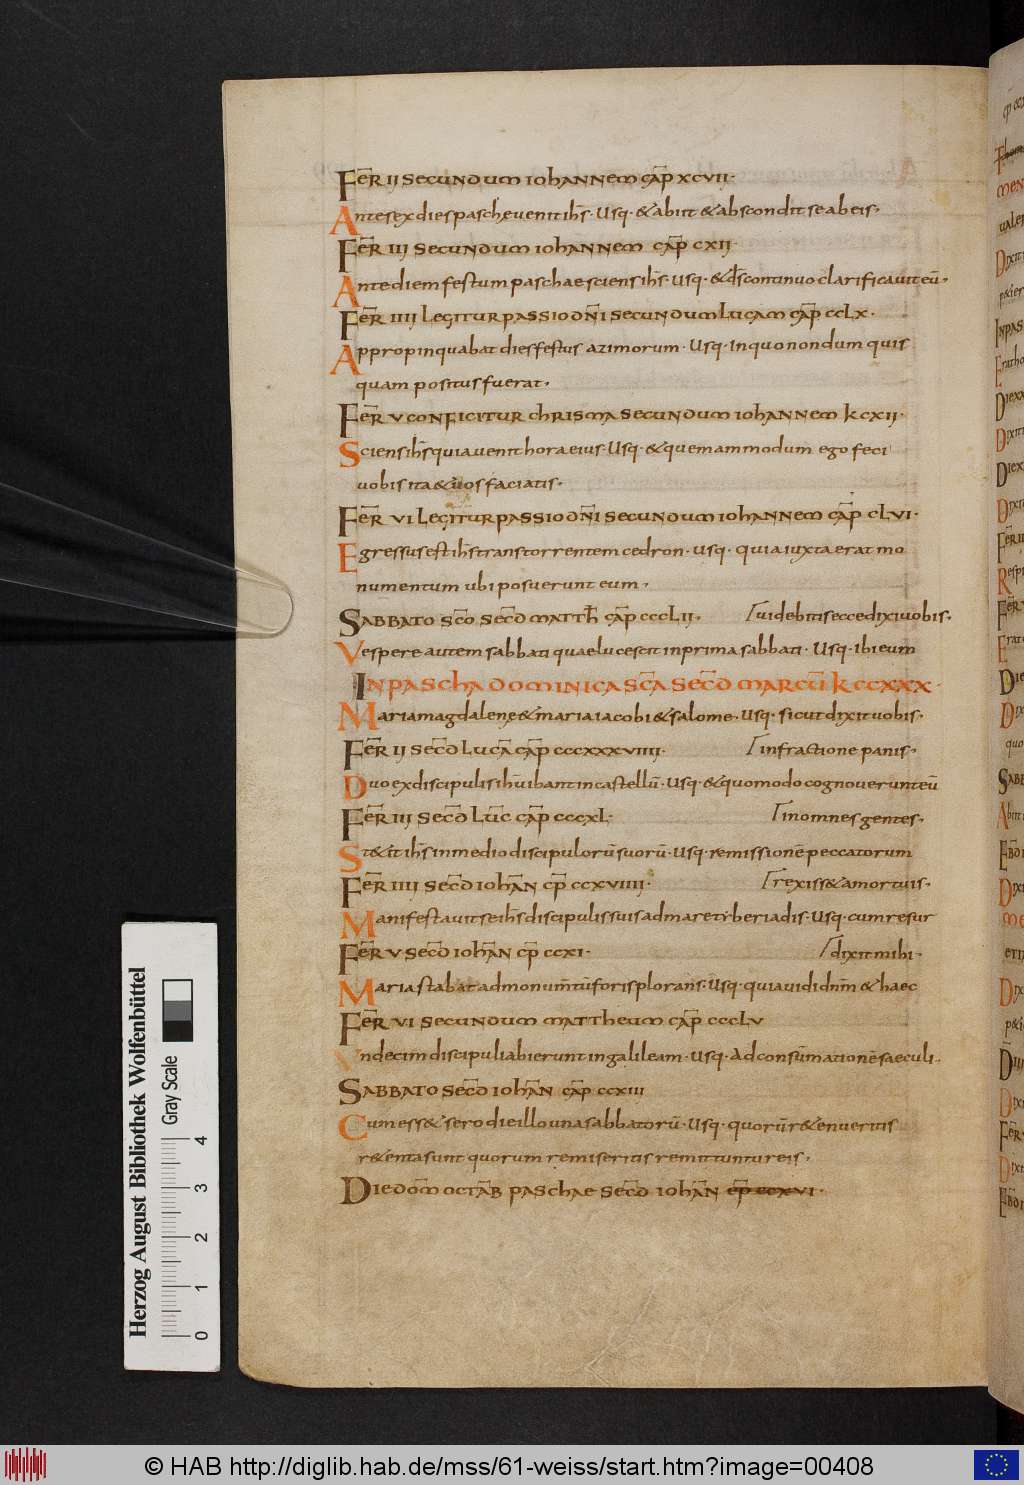 FER̄ II SECUNDUM IOHANNEM CAP̄ XCVII·
Ante sex dies paschę uenit ihs̄· Usq· & abiit & abscondit se ab eis·
FER̄ III SECUNDUM IOHANNEM CAP̄ CXII·
Ante diem festum paschae sciens ihs̄· Usq· & ds̄ continuo clarificauit eū·
FER̄ IIII LEGITUR PASSIO DN̄I SECUNDUM LUCAM CAP̄ CCLX·
Appropinquabat dies festus azimorum· Usq· In quo nondum quis
quam positus fuerat·
FER̄ V CONFICITUR CHRISMA SECUNDUM IOHANNEM K CXII·
Sciens ihs̄ quia uenit hora eius· Usq· & quemammodum ego feci
uobis ita & uos faciatis·
FER̄ VI LEGITUR PASSIO DN̄I SECUNDUM IOHANNEM CAP̄ CLVI·
Egressus est ihs̄ trans torrentem cedron· usq· quia iuxta erat mo
numentum ubi posuerunt eum·
SABBATO SC̄O SEC̄D MATTH̄ CAP̄ CCCLII· uidebitis ecce dixi uobis·
Vespere autem sabbati quae lucescit in prima sabbati· Usq· Ibi eum
IN PASCHA DOMINICA SC̄A SEC̄D MARCŪ K CCXXX·
Maria magdalene & maria iacobi & salome· Usq· sicut dixit uobis·
FER̄ II SEC̄D LUCĀ CAP̄ CCCXXXVIIII· in fractione panis·
Duo ex discipulis ihū ibant in castellū· Usq· & quomodo cognouerunt eū
FER̄ III SEC̄D LUC̄ CAP̄ CCCXL· in omnes gentes·
St&it ihs̄ in medio discipulorū suorū· Usq· remissionē peccatorum
FER̄ IIII SEC̄D IOHAN̄ CP̄ CCXVIIII· rexiss& a mortuis·
Manifestauit se ihs̄ discipulis suis ad mare tiberiadis· Usq· cum resur
FER̄ V SEC̄D IOHAN̄ CP̄ CCXI· dixit mihi·
Maria stabat ad monum̄tū foris plorans· Usq· quia uidi dnm̄ & haec
FER̄ VI SECUNDUM MATTHEUM CAP̄ CCCLV
Vndecim discipuli abierunt in galileam· Usq· Ad consūmationē saeculi·
SABBATO SEC̄D IOHAN̄ CAP̄ CCXIII
Cum ess& sero die illo una sabbatorū· Usq· quorū r&enueritis
r&enta sunt quorum remiseritis remittuntur eis·
DIE DOM̄ OCTAB̄ PASCHAE SEC̄D IOHAN̄ CP̄ CCXVI·
Herzog August Bibliothek Wolfenbüttel
Gray Scale
0 1 2 3 4
© HAB http://diglib.hab.de/mss/61-weiss/start.htm?image=00408